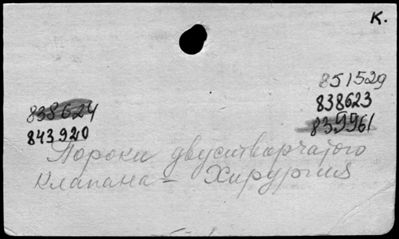 К.
851529
838624
838623
843920
839961
Пороки двустворчатого
клапана - Хирургия